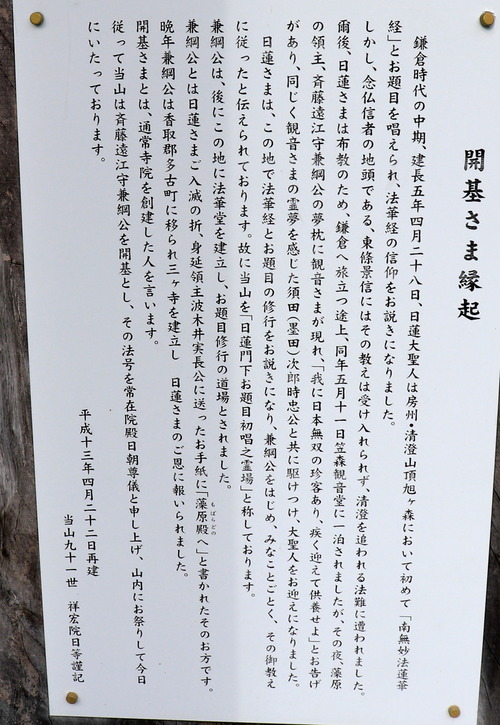 開基さま縁起
鎌倉時代の中期、建長五年四月二十八日、日蓮大聖人は房州・清澄山頂旭ヶ森において初めて「南無妙法蓮華
経」とお題目を唱えられ、法華経の信仰をお説きになりました。
しかし、念仏信者の地頭である、東條景信にはその教えは受け入れられず、清澄を追われる法難に遭われました。
爾後、日蓮さまは布教のため、鎌倉へ旅立つ途上、同年五月十一日笠森観音堂に一泊されましたが、その夜、藻原
の領主、斉藤遠江守兼綱公の夢枕に観音さまが現れ、「我に日本無双の珍客あり、疾く迎えて供養せよ」とお告げ
があり、同じく観音さまの霊夢を感じた須田(墨田)次郎時忠公と共に駆けつけ、大聖人をお迎えになりました。
日蓮さまは、この地で法華経とお題目の修行をお説きになり、兼綱公をはじめ、みなことごとく、その御教え
に従ったと伝えられております。故に当山を「日蓮門下お題目初唱之霊場」と称しております。
兼綱公は、後にこの地に法華堂を建立し、お題目修行の道場とされました。
兼綱公とは日蓮さまご入滅の折、身延領主波木井実長公に送ったお手紙に「藻原殿へ」と書かれたそのお方です。
もばらどの
晩年兼綱公は香取郡多古町に移られ三ヶ寺を建立し　日蓮さまのご恩に報いられました。
開基さまとは、通常寺院を創建した人を言います。
従って当山は斉藤遠江守兼綱公を開基とし、その法号を常在院殿日朝尊儀と申し上げ、山内にお祭りして今日
にいたっております。
平成十三年四月二十二日再建
当山九十一世　祥宏院日等謹記